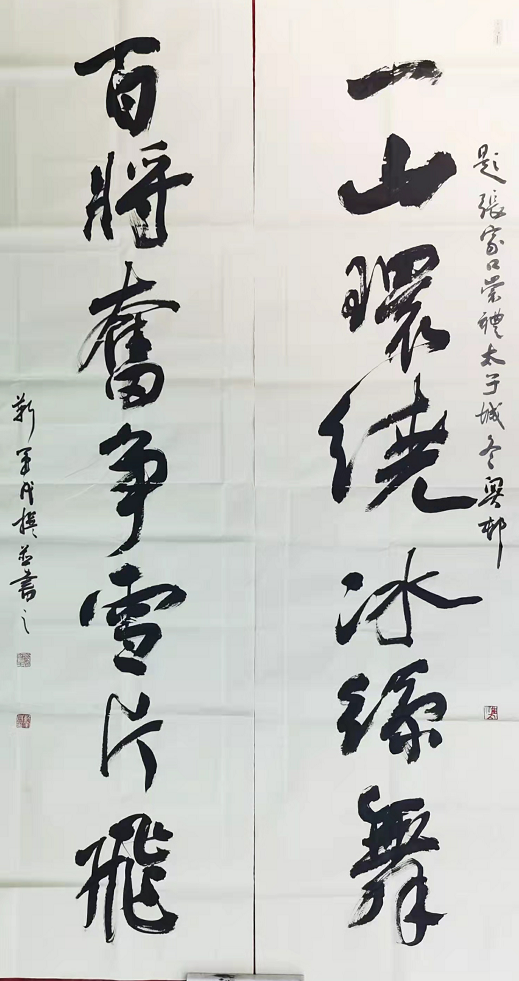 題張家口崇禮太子城冬奧邨
一山環繞冰綵舞
百將奮争雪片飛
靳軍撰并書之